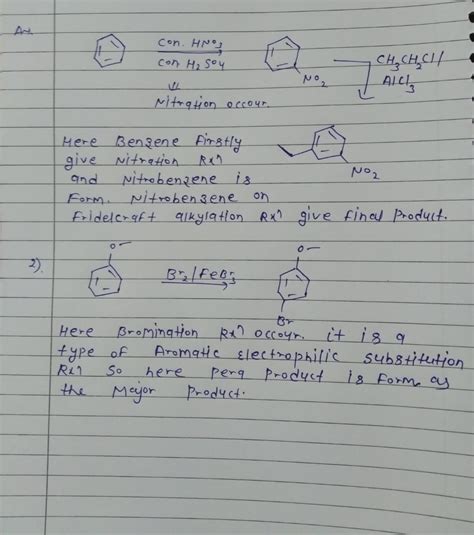 Ans
Con. HNO3
Con H2SO4
NO2
CH3CH2Cl/
AlCl3
Nitration occour.
Here Benzene firstly
give Nitration Rxn
and Nitrobenzene is
Form. Nitrobenzene on
NO2
Fridelcraft alkylation Rxn give final Product.
2).
O—
Br2/FeBr3
O—
Br
Here Bromination Rxn occour. it is a
type of Aromatic electrophilic substitution
Rxn So here para Product is form as
the Major Product.